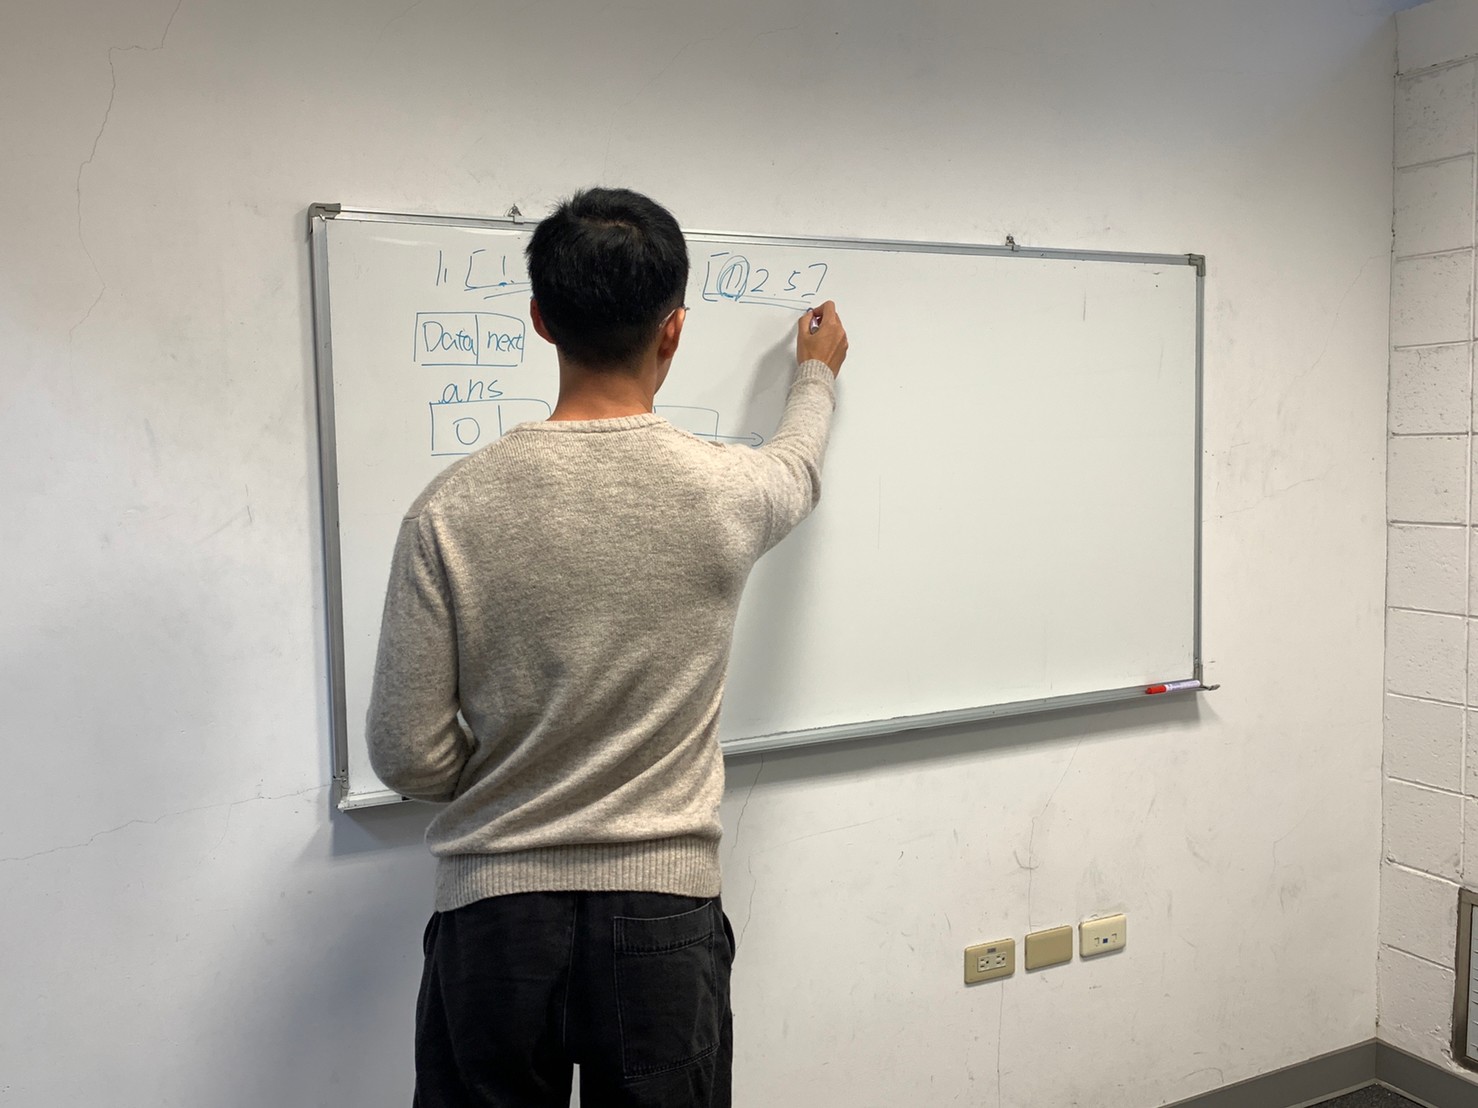 l1 [1. [1 2.5]
Data next
ans
0